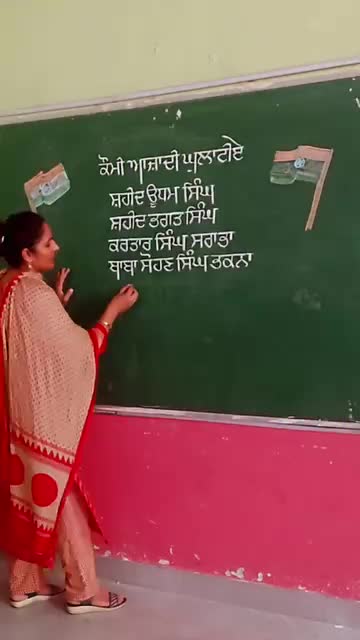 ਕੌਮੀ ਆਜ਼ਾਦੀ ਘੁਲਾਟੀਏ
ਸ਼ਹੀਦ ਊਧਮ ਸਿੰਘ
ਸ਼ਹੀਦ ਭਗਤ ਸਿੰਘ
ਕਰਤਾਰ ਸਿੰਘ ਸਰਾਭਾ
ਬਾਬਾ ਸੋਹਣ ਸਿੰਘ ਭਕਨਾ